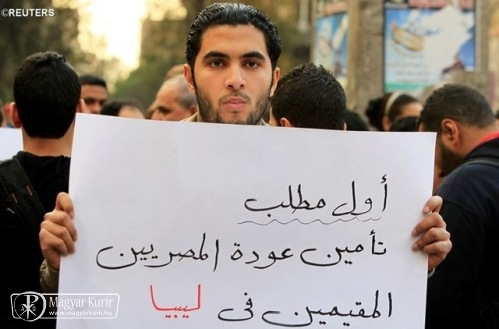 ©REUTERS
أول مطلب
تأمين عودة المصريين
المقيمين فى ليبيا
Magyar Kurír
www.magyarkurir.hu